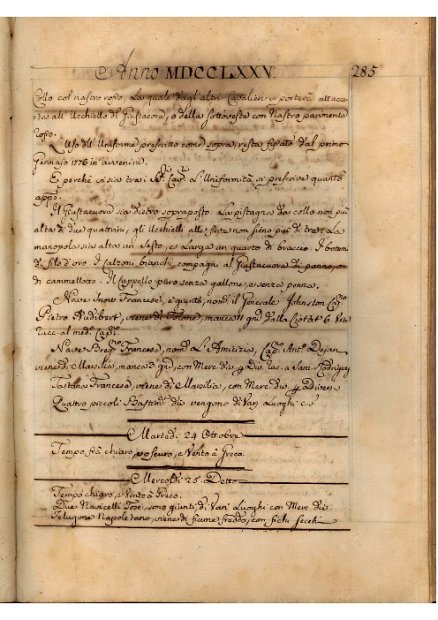 Anno MDCCLXXV. 285
Collo col nastro rosso, La quale dagl'altri Cavalieri si porterà attacca
ta all'Ucchiello del Giustacore, o della Sottovesta con Nastro parimente
rosso.
L'Uso dell'Uniforme prescritto come sopra, resta fissato dal primo
Gennajo 1776 in avvenire.
E perchè vi sia tra i Cav. L'Uniformità si prescrive quanto
app.
Il Giustacuore sia dietro sopraposto. La pistagna da collo non più
alta di due quattrini, gli Ucchielli alle non sieno più di tre. La
manopola sia alta un Sesto, e Larga un quarto di braccio. I botoni
di filo d'oro. I calzoni bianchi compagni al Giustacuore di panno, o
di cammellotto. Il Cappello pure senza gallone, e senza penna.
Nave Francese, è giunta, nom. il Generale Johnston Cap.
Pietro Audibert, viene di Tolone, manca dalla 6. Vin
med. Cap.
Nave Francese, nom. L'Amicizia, Cap. Ant.
viene di Marsilia, manca giorni, con Merc. div. Due a San
Tartano Francese, viene di Marsilia, con Merc. div. p. Diversi
Quattro piccoli Bastim. div. vengono di Varj Luoghi
Martedi 24 Ottobre
Tempo frà chiaro, ed oscuro, e Vento à Greco.
Mercoldi 25. Detto
Tempo chiaro, e Vento à Greco.
Due Navicelli Tos. sono giunti di Varj Luoghi con Merc. div.
Felugone Napoletano, viene di fiume freddo, con fichi secchi